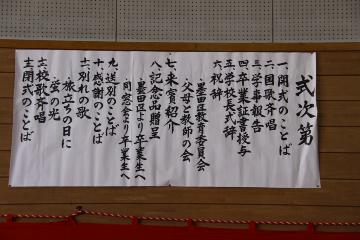 式次第
一、開式のことば
二、国歌斉唱
三、学事報告
四、卒業証書授与
五、学校長式辞
六、祝辞
墨田区教育委員会
父母と教師の会
七、来賓紹介
八、記念品贈呈
墨田区より卒業生へ
同窓会より卒業生へ
九、送別のことば
十、感謝のことば
十一、別れの歌
旅立ちの日に
蛍の光
十二、校歌斉唱
十三、閉式のことば